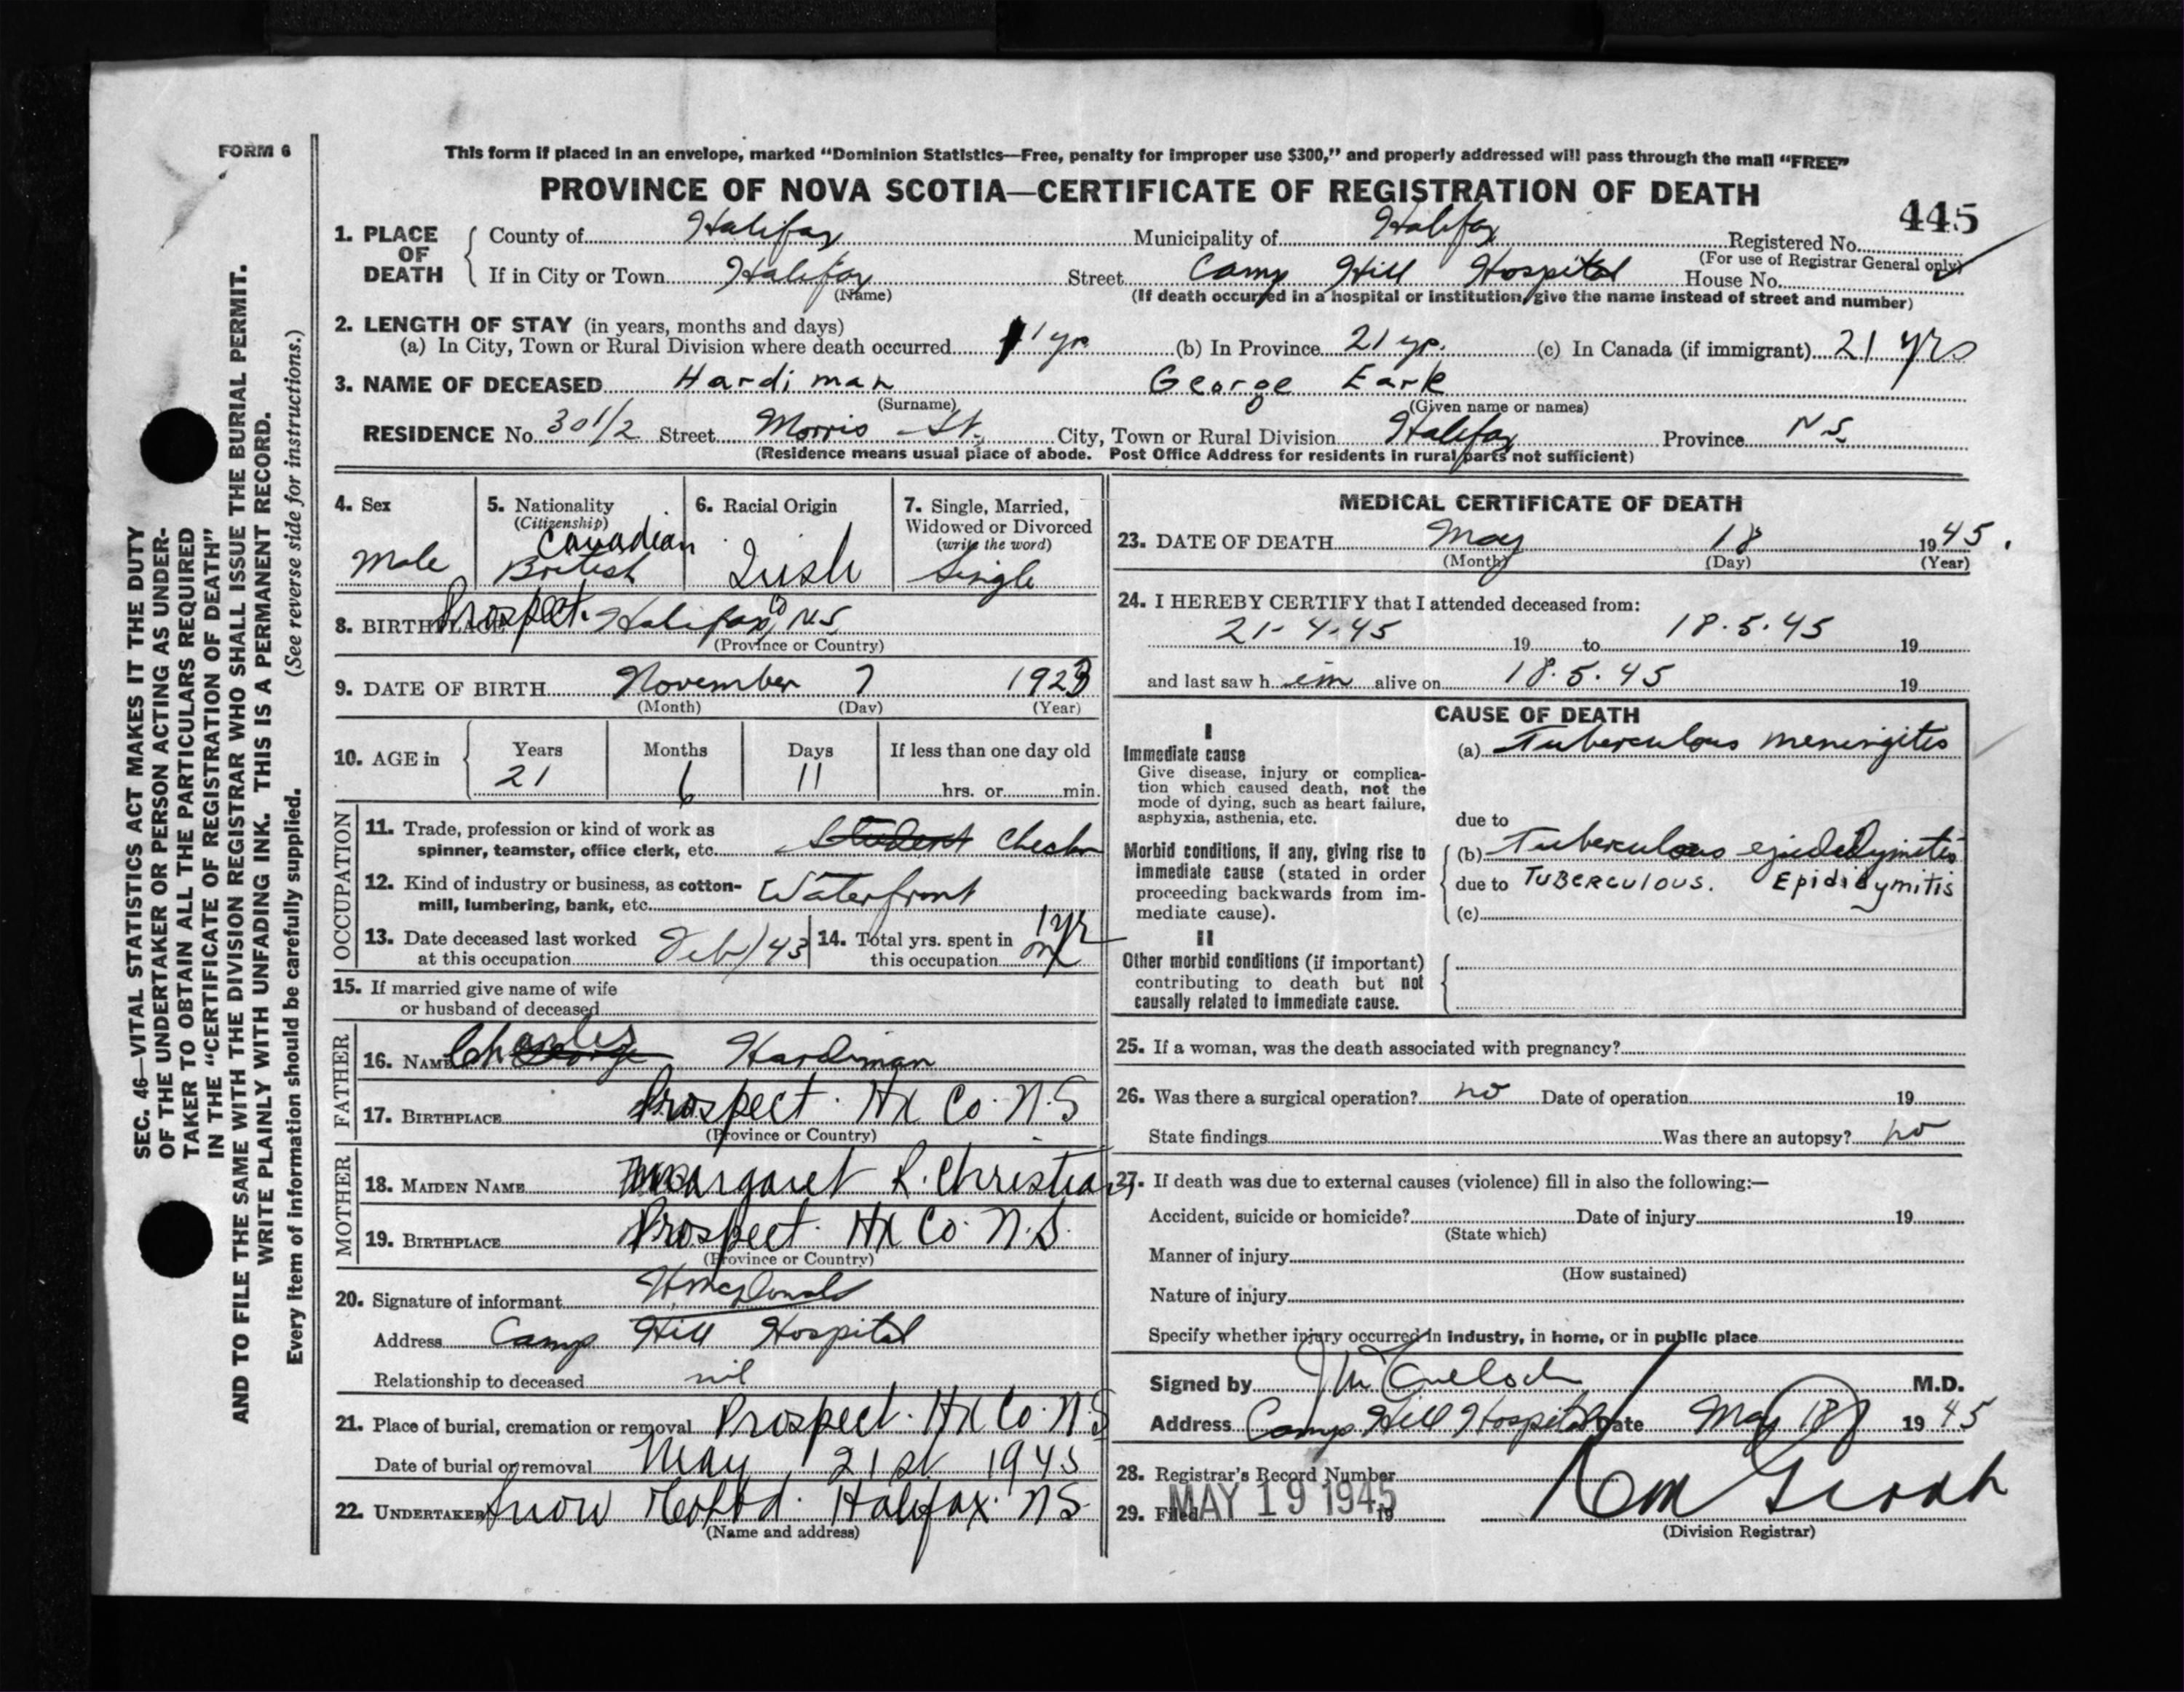 FORM 6
This form if placed in an envelope, marked “Dominion Statistics—Free, penalty for improper use $300,” and properly addressed will pass through the mail “FREE”
PROVINCE OF NOVA SCOTIA—CERTIFICATE OF REGISTRATION OF DEATH
445
1. PLACE OF DEATH County of Halifax Municipality of Halifax Registered No.
(For use of Registrar General only)
If in City or Town Halifax Street Camp Hill Hospital House No.
(Name) (If death occurred in a hospital or institution, give the name instead of street and number)
2. LENGTH OF STAY (in years, months and days)
(a) In City, Town or Rural Division where death occurred 1 yr (b) In Province 21 yr. (c) In Canada (if immigrant) 21 yrs
3. NAME OF DECEASED Hardiman George Earle
(Surname) (Given name or names)
RESIDENCE No. 30 1/2 Street Morris St. City, Town or Rural Division Halifax Province N.S.
(Residence means usual place of abode. Post Office Address for residents in rural parts not sufficient)
4. Sex
Male
5. Nationality
(Citizenship)
Canadian
British
6. Racial Origin
Irish
7. Single, Married,
Widowed or Divorced
(write the word)
Single
8. BIRTHPLACE Prospect. Halifax Co N.S
(Province or Country)
9. DATE OF BIRTH November 7 1923
(Month) (Day) (Year)
10. AGE in Years Months Days If less than one day old
21 6 11 hrs. or min.
OCCUPATION
11. Trade, profession or kind of work as
spinner, teamster, office clerk, etc. Student Checker
12. Kind of industry or business, as cotton-
mill, lumbering, bank, etc. Waterfront
13. Date deceased last worked
at this occupation Feb/43
14. Total yrs. spent in
this occupation 1 yr
15. If married give name of wife
or husband of deceased
FATHER
16. NAME Charles George Hardiman
17. BIRTHPLACE Prospect. Hx Co. N.S
(Province or Country)
MOTHER
18. MAIDEN NAME Margaret R. Christian
19. BIRTHPLACE Prospect. Hx Co N.S.
(Province or Country)
20. Signature of informant H McDonald
Address Camp Hill Hospital
Relationship to deceased nil
21. Place of burial, cremation or removal Prospect. Hx Co. N.S
Date of burial or removal May 21st 1945
22. UNDERTAKER Snow & Co Ltd. Halifax. N S.
(Name and address)
MEDICAL CERTIFICATE OF DEATH
23. DATE OF DEATH May 18 1945.
(Month) (Day) (Year)
24. I HEREBY CERTIFY that I attended deceased from:
21-4-45 19 to 18.5.45 19
and last saw h im alive on 18.5.45 19
CAUSE OF DEATH
I
Immediate cause
Give disease, injury or complica-
tion which caused death, not the
mode of dying, such as heart failure,
asphyxia, asthenia, etc.
(a) Tuberculous meningitis
due to
Morbid conditions, if any, giving rise to
immediate cause (stated in order
proceeding backwards from im-
mediate cause).
(b) Tuberculous epididymitis
due to TUBERCULOUS. Epididymitis
(c)
II
Other morbid conditions (if important)
contributing to death but not
causally related to immediate cause.
25. If a woman, was the death associated with pregnancy?
26. Was there a surgical operation? no Date of operation 19
State findings Was there an autopsy? no
27. If death was due to external causes (violence) fill in also the following:—
Accident, suicide or homicide? Date of injury 19
(State which)
Manner of injury
(How sustained)
Nature of injury
Specify whether injury occurred in industry, in home, or in public place
Signed by J McCulloch M.D.
Address Camp Hill Hospital Date May 18 1945
28. Registrar's Record Number
29. Filed MAY 19 1945 19
(Division Registrar)
SEC. 46—VITAL STATISTICS ACT MAKES IT THE DUTY
OF THE UNDERTAKER OR PERSON ACTING AS UNDER-
TAKER TO OBTAIN ALL THE PARTICULARS REQUIRED
IN THE “CERTIFICATE OF REGISTRATION OF DEATH”
AND TO FILE THE SAME WITH THE DIVISION REGISTRAR WHO SHALL ISSUE THE BURIAL PERMIT.
WRITE PLAINLY WITH UNFADING INK. THIS IS A PERMANENT RECORD.
Every item of information should be carefully supplied. (See reverse side for instructions.)